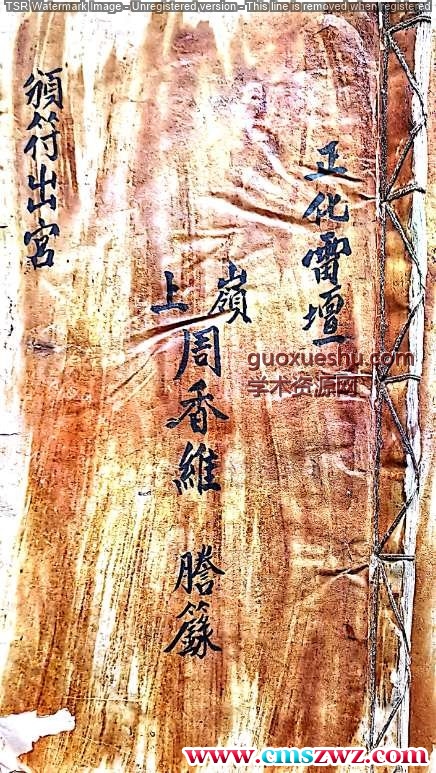 TSR Watermark Image - Unregistered version - This line is removed when registered
正化雷壇
嶺上
周香維 謄籙
頒符出宮
guoxueshu.com
学术资源网
www.cmszwz.com